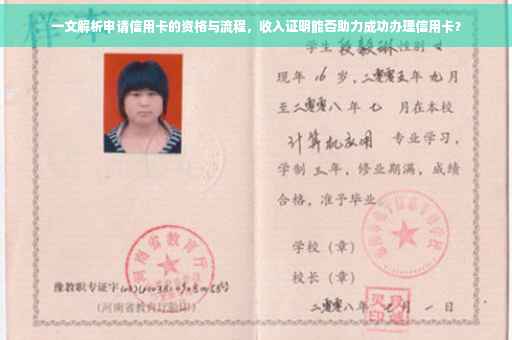 一文解析申请信用卡的资格与流程，收入证明能否助力成功办理信用卡？
样本
学生 段毅琳 性别 女
现年 16 岁，二零零五年 九月
至二零零八年 七 月在本校
计算机应用 专业学习，
学制 三年，修业期满，成绩
合格，准予毕业
学校（章）
河南省教育厅
校长（章）
豫教职专证字
（河南省教育厅验印）
二零零八年 月 一 日